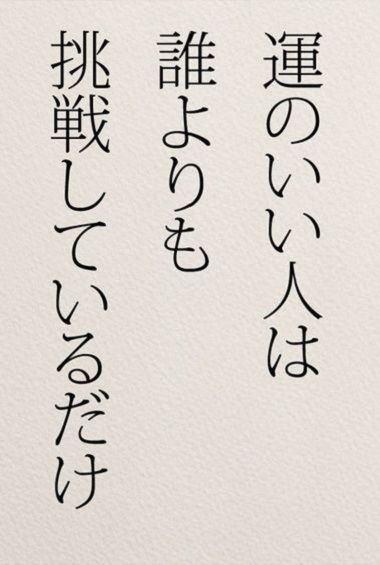 運のいい人は
誰よりも
挑戦しているだけ